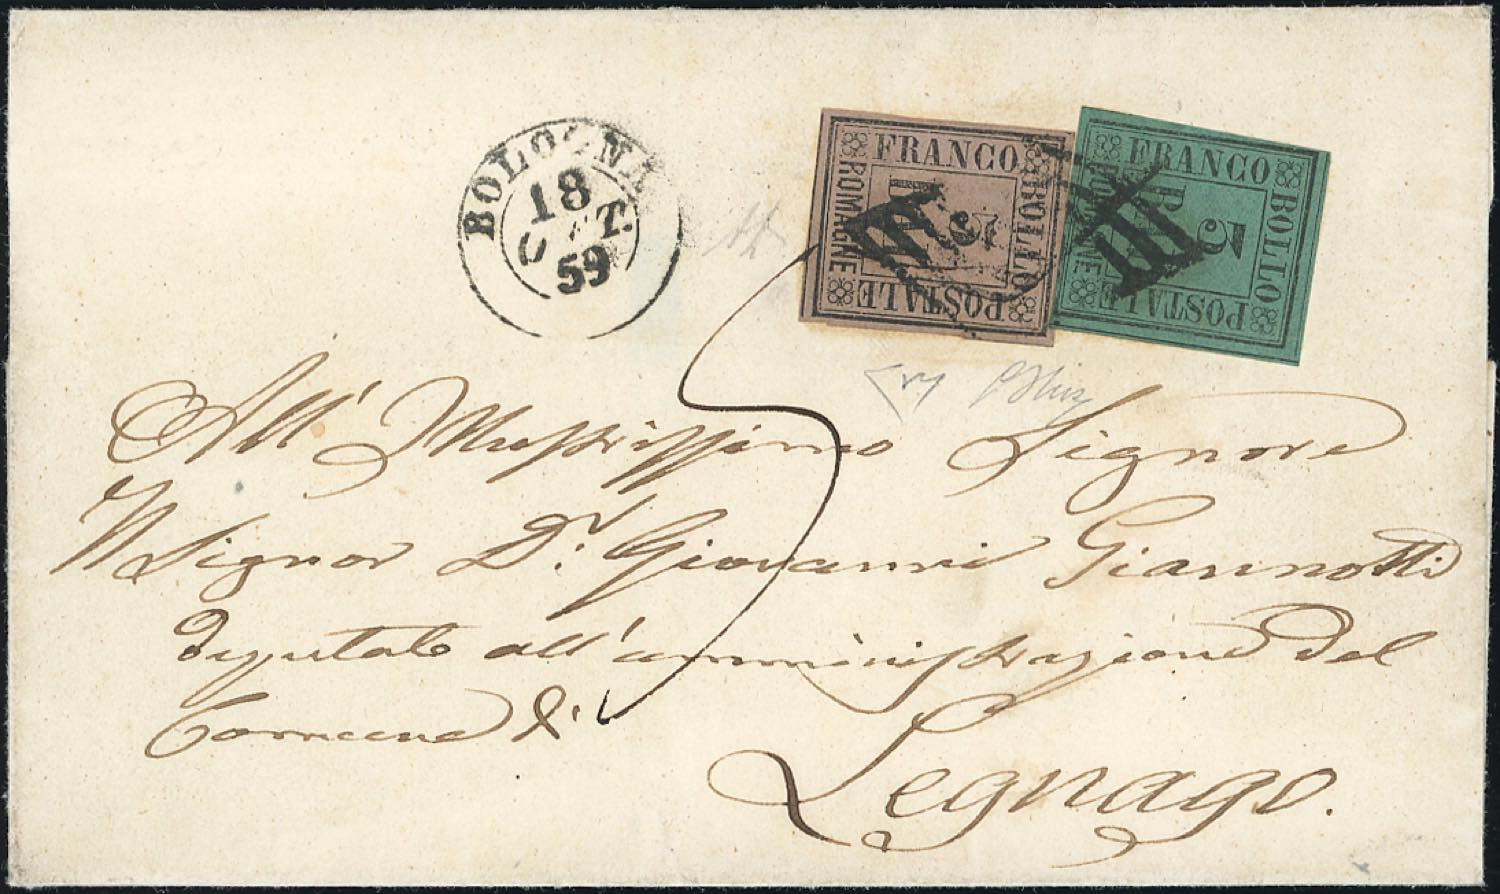 BOLOGNA
18
OTT.
59
FRANCO
BOLLO
POSTALE
ROMAGNE
BAJ
5
FRANCO
BOLLO
POSTALE
ROMAGNE
BAJ
5
5
All' Illustrissimo Signore
Il Signor Dr. Giovanni Giannotti
Deputato all'amministrazione del
Comune di
Legnago.